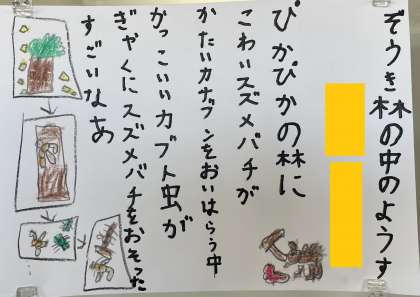 ぞうき林の中のようす
ぴかぴかの林に
こわいスズメバチが
かたいカナブンをおいはらう中
かっこいいカブト虫が
ぎゃくにスズメバチをおそった
すごいなあ